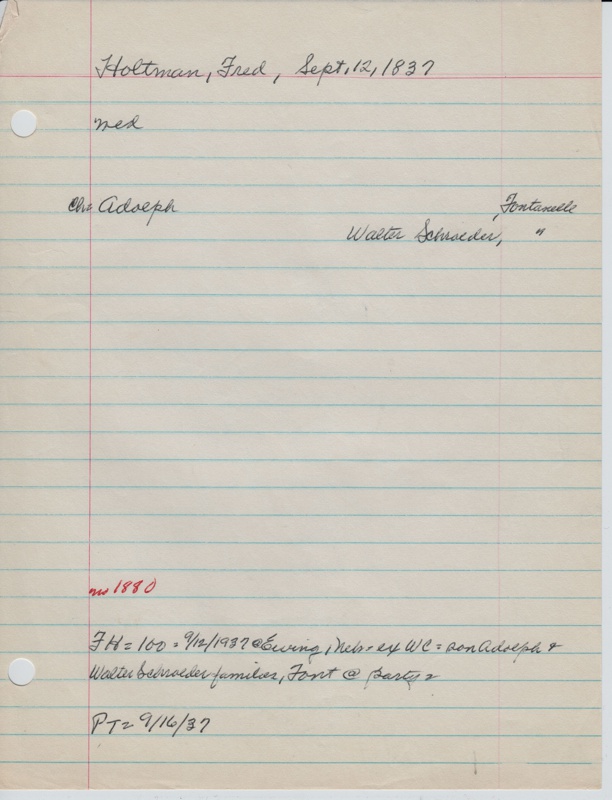 Holtman, Fred, Sept, 12, 1837
med
Ch= Adolph , Fontanelle
Walter Schroeder, "
no 1880
FH = 100 = 9/12/1937 @ Ewing, Neb = ex WC = son Adolph &
Walter Schroeder families, Font @ party =
PT = 9/16/37